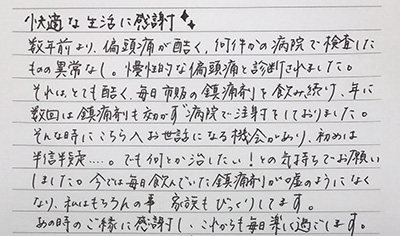 快適な生活に感謝
数年前より、偏頭痛が酷く、何件かの病院で検査した
ものの異常なし。慢性的な偏頭痛と診断されました。
それは、とても酷く、毎日市販の鎮痛剤を飲み続け、年に
数回は鎮痛剤も効かず病院で注射をしておりました。
そんな時にこちらへお世話になる機会があり、初めは
半信半疑‥‥。でも何とか治したい！との気持ちでお願い
しました。今では毎日飲んでいた鎮痛剤が嘘のようになく
なり、私はもちろんの事 家族もびっくりしてます。
あの時のご縁に感謝し、これからも毎日楽しく過ごします。